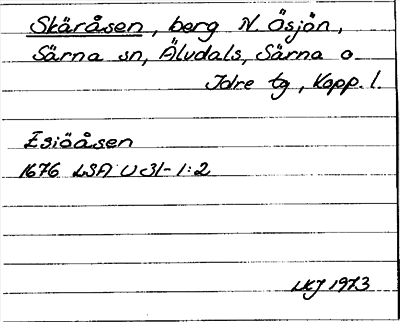 Skäråsen, berg N. Ösjön,
Särna sn, Älvdals, Särna o
Idre tg, Kopp. l.
Esiöåsen
1676 LSA U 31-1:2
1973